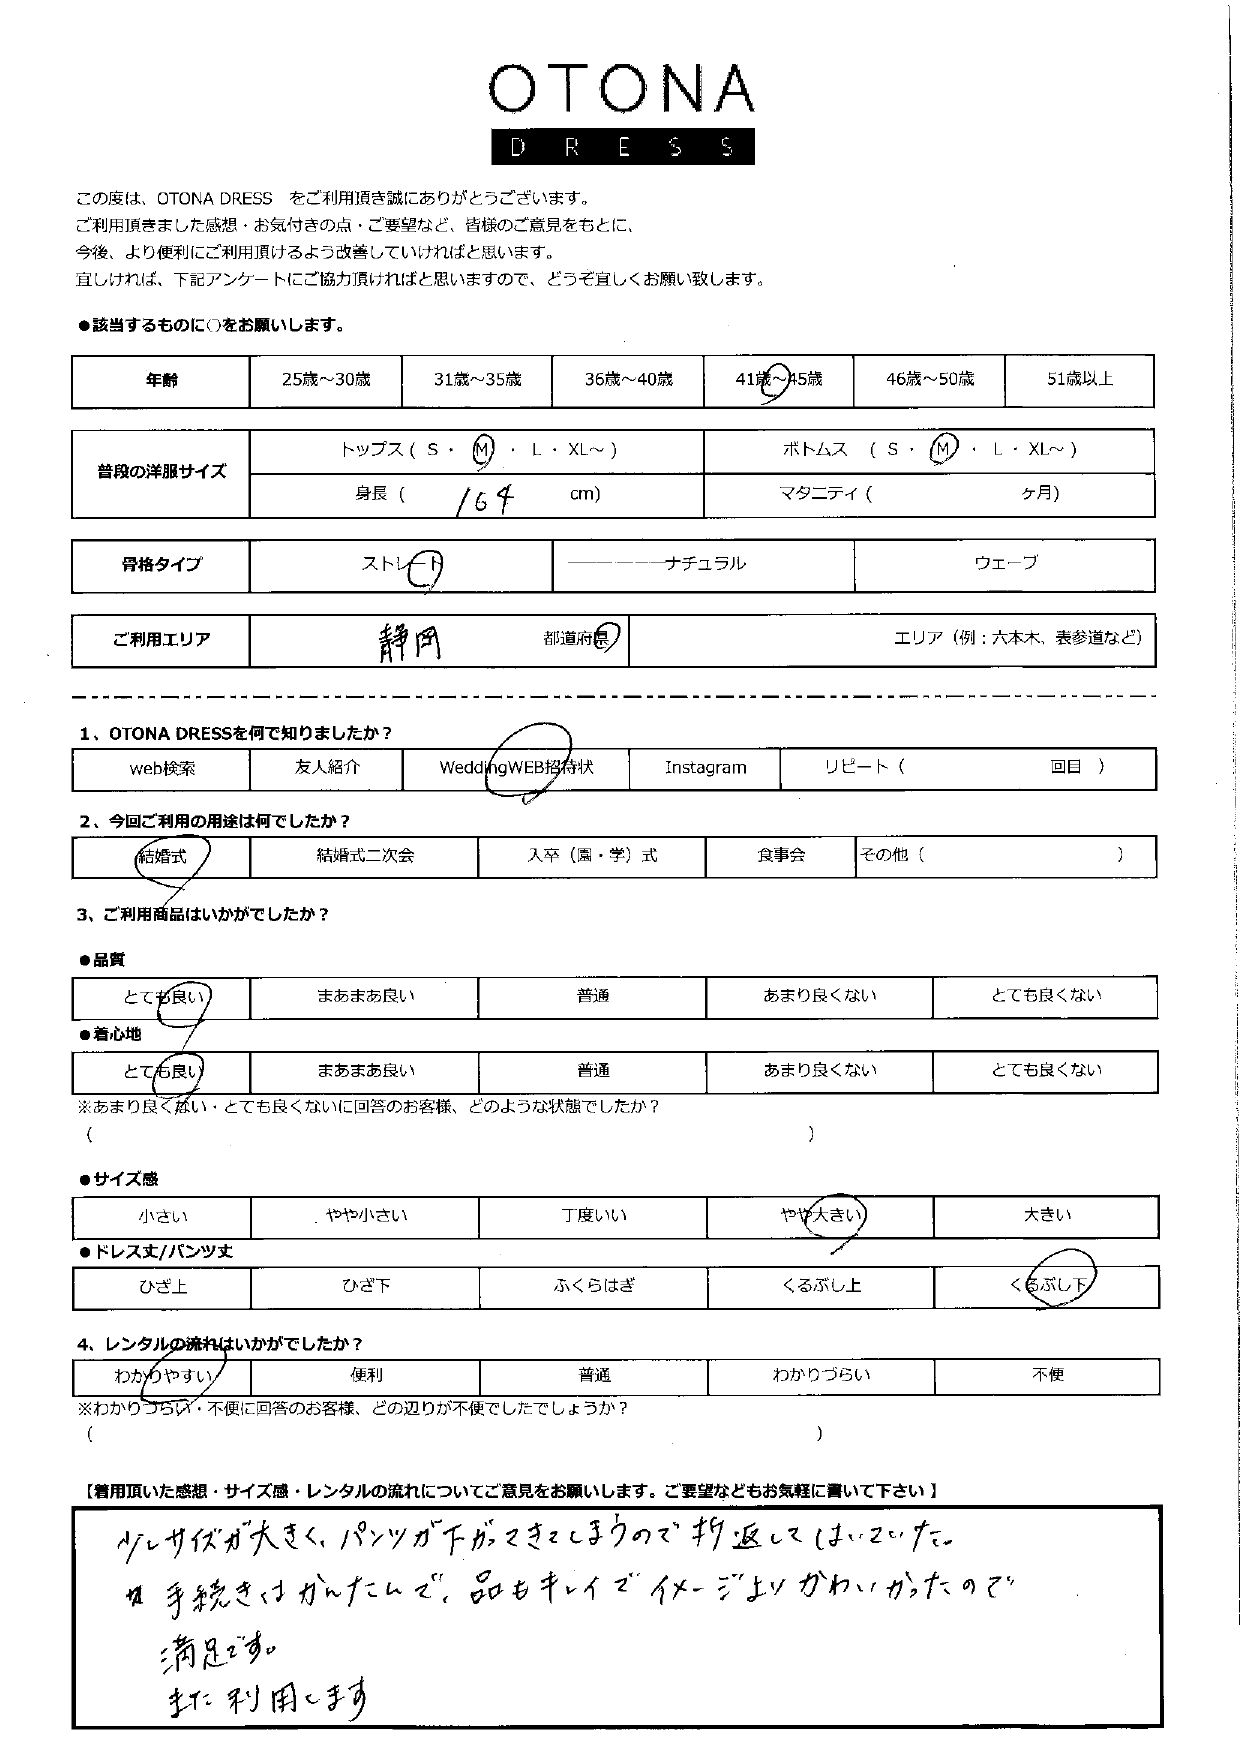 OTONA
DRESS
この度は、OTONA DRESS をご利用頂き誠にありがとうございます。
ご利用頂きました感想・お気付きの点・ご要望など、皆様のご意見をもとに、
今後、より便利にご利用頂けるよう改善していければと思います。
宜しければ、下記アンケートにご協力頂ければと思いますので、どうぞ宜しくお願い致します。
●該当するものに○をお願いします。
年齢 25歳～30歳 31歳～35歳 36歳～40歳 41歳～45歳 46歳～50歳 51歳以上
普段の洋服サイズ トップス ( S ・ M ・ L ・ XL～ ) ボトムス ( S ・ M ・ L ・ XL～ )
身長 ( 164 cm) マタニティ ( ケ月)
骨格タイプ ストレート ナチュラル ウェーブ
ご利用エリア 静岡 都道府県 エリア（例：六本木、表参道など）
1、OTONA DRESSを何で知りましたか？
web検索 友人紹介 WeddingWEB招待状 Instagram リピート（ 回目 ）
2、今回ご利用の用途は何でしたか？
結婚式 結婚式二次会 入卒（園・学）式 食事会 その他（ ）
3、ご利用商品はいかがでしたか？
●品質
とても良い まあまあ良い 普通 あまり良くない とても良くない
●着心地
とても良い まあまあ良い 普通 あまり良くない とても良くない
※あまり良くない・とても良くないに回答のお客様、どのような状態でしたか？
（ ）
●サイズ感
小さい やや小さい 丁度いい やや大きい 大きい
●ドレス丈/パンツ丈
ひざ上 ひざ下 ふくらはぎ くるぶし上 くるぶし下
4、レンタルの流れはいかがでしたか？
わかりやすい 便利 普通 わかりづらい 不便
※わかりづらい・不便に回答のお客様、どの辺りが不便でしたでしょうか？
（ ）
【着用頂いた感想・サイズ感・レンタルの流れについてご意見をお願いします。ご要望などもお気軽に書いて下さい】
少しサイズが大きく、パンツが下がってきてしまうので折り返してはいていた。
手続きはかんたんで、品もキレイでイメージよりかわいかったので
満足です。
また利用します